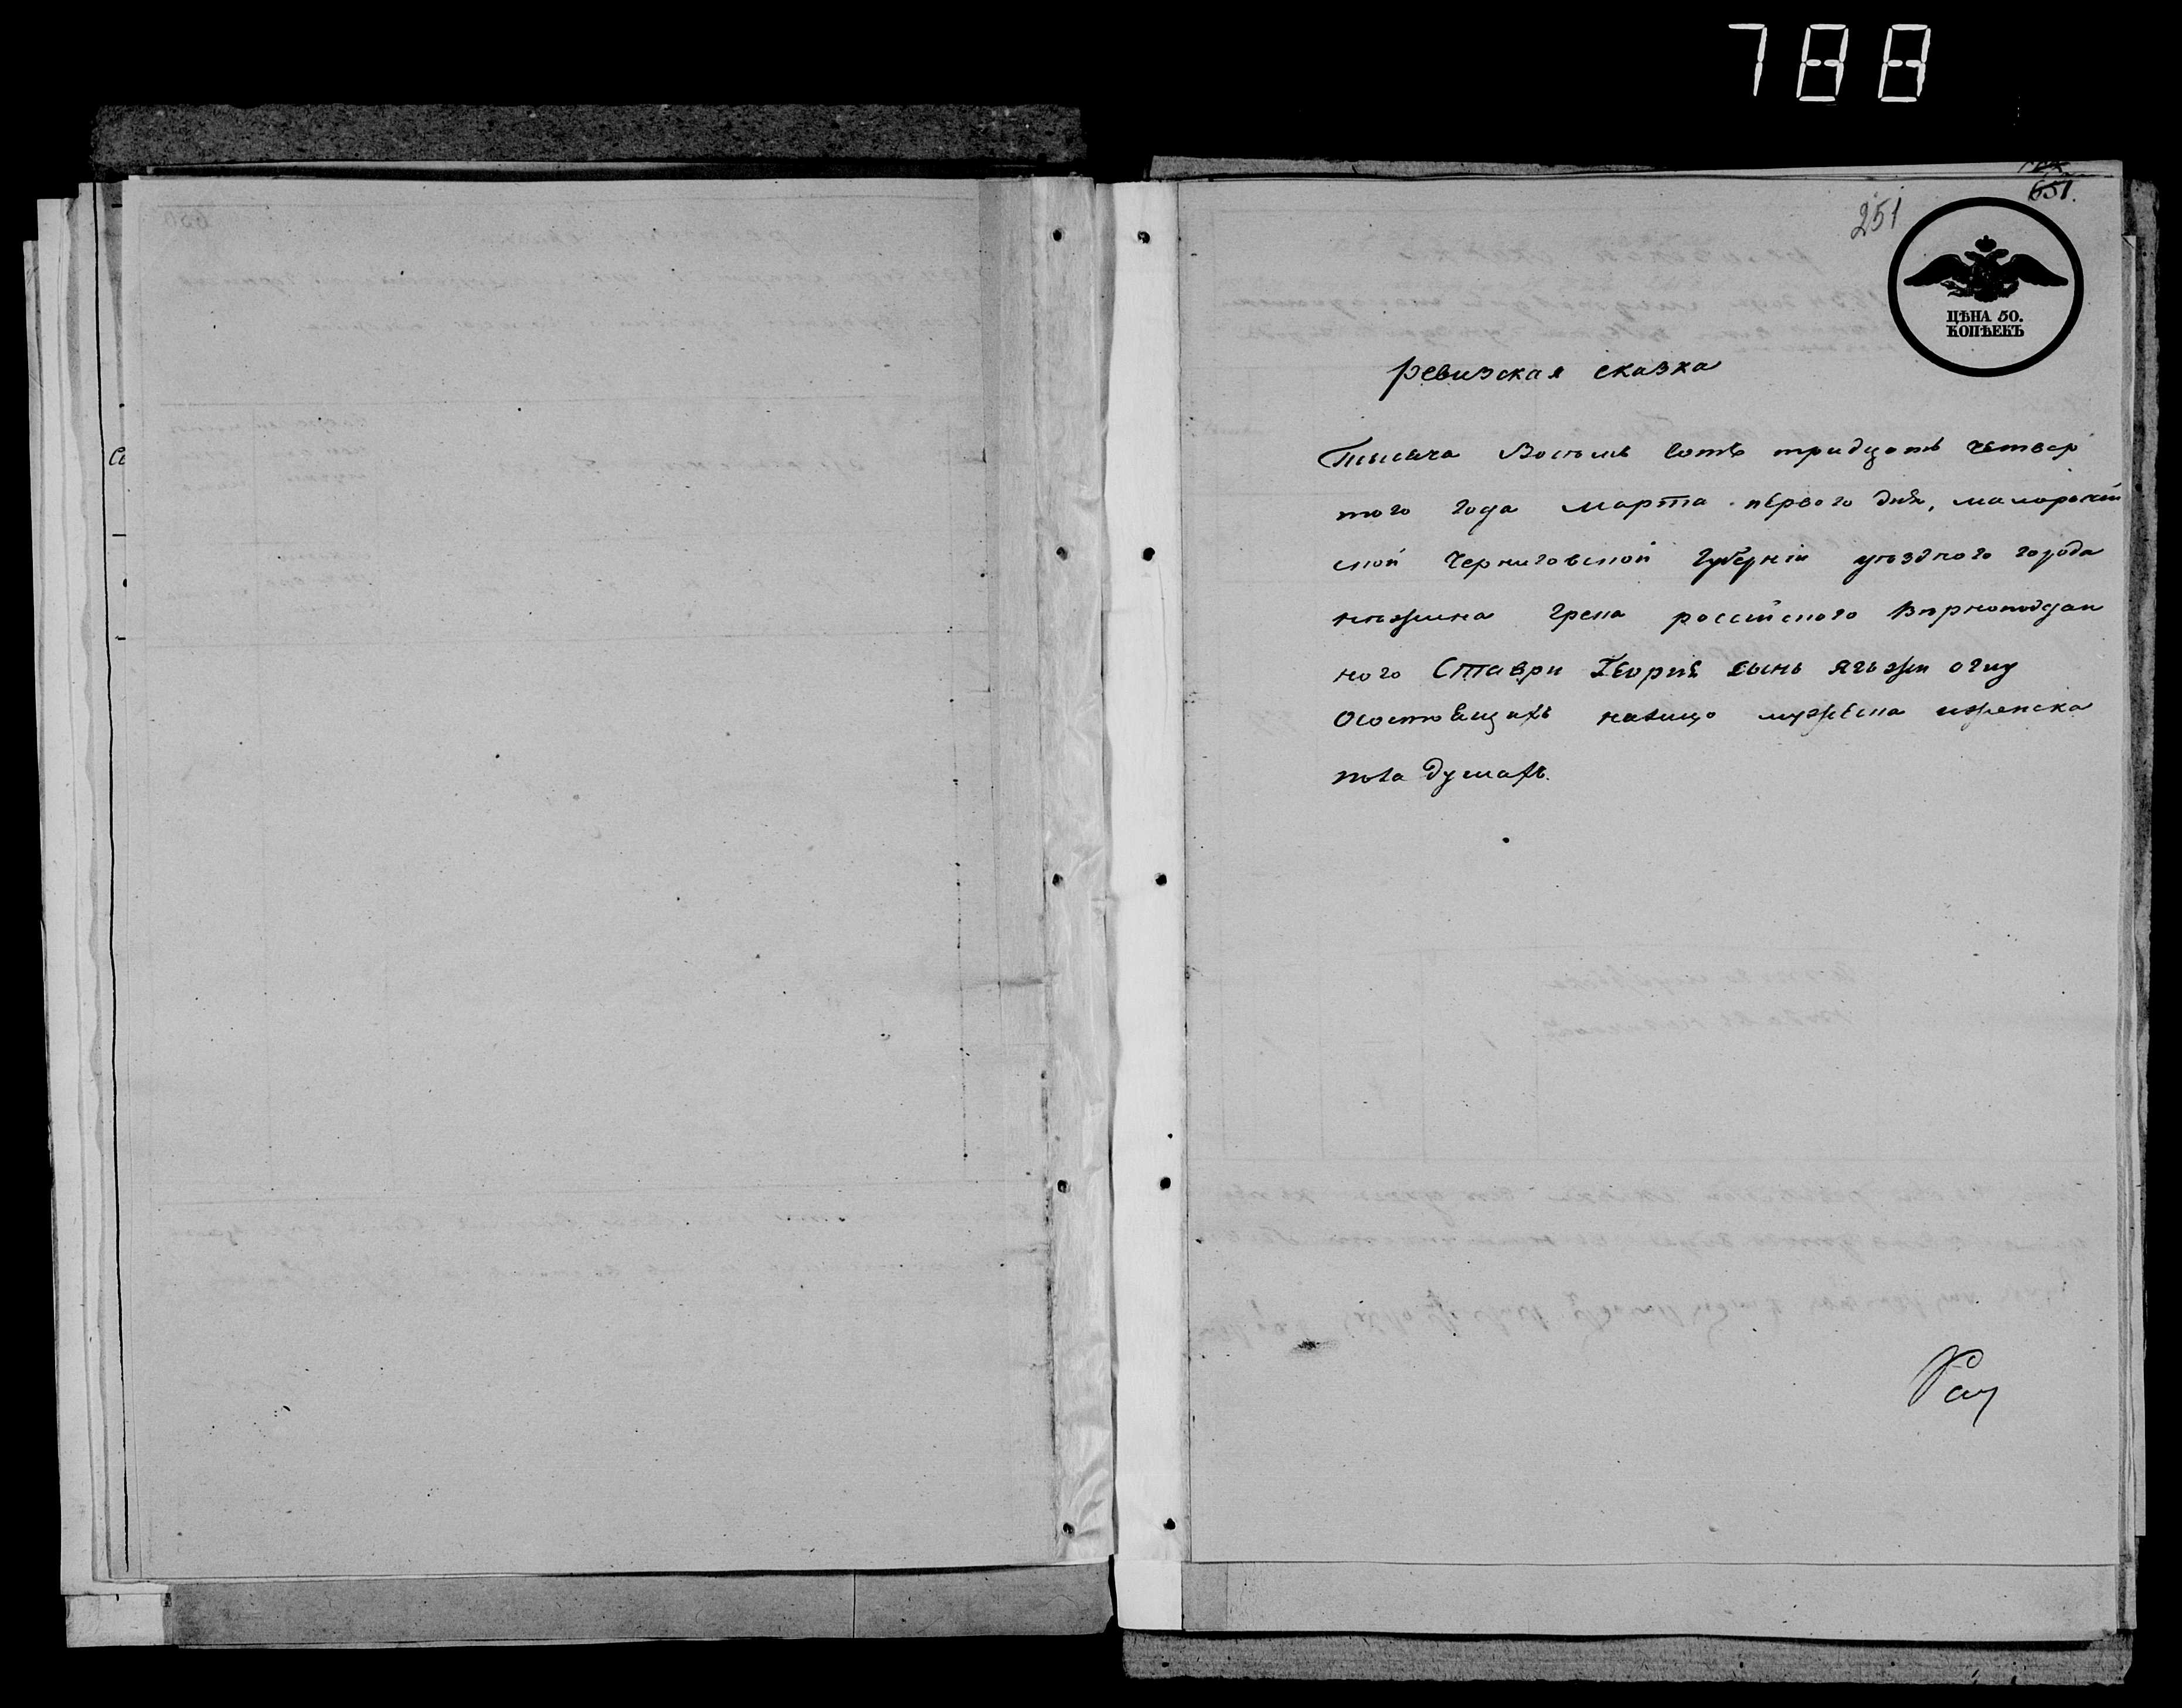 788
651.
251
ЦѢНА 50.
КОПѢЕКЪ
ревизская сказка
Тысяча Восемь сотъ тридцать четвер
того года марта первого дня, малоросий
ской Черниговской Губерніи уезднаго города
нѣжина грека россійского вѣрноподдан
ного Ставри Георгия сынъ
О состоящихъ налицо мужеска иженска
пола душахъ.